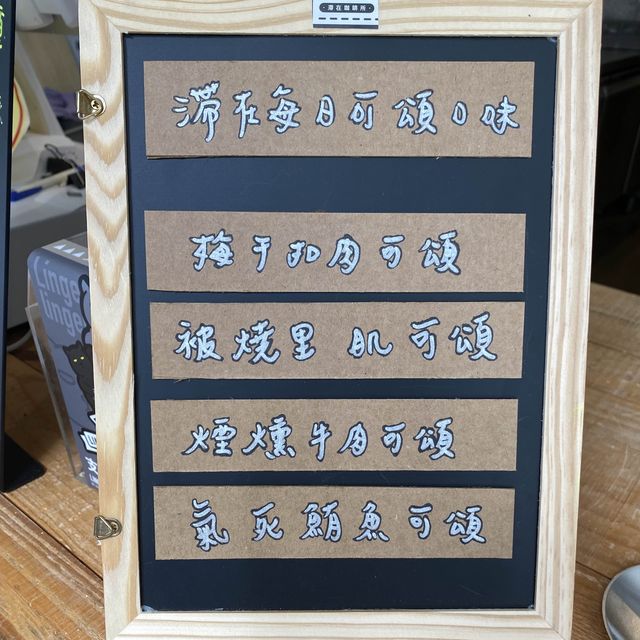 滯在咖啡所
滯在每日可頌口味
梅干扣肉可頌
被燒里肌可頌
煙燻牛肉可頌
氣死鮪魚可頌
Linge
linge